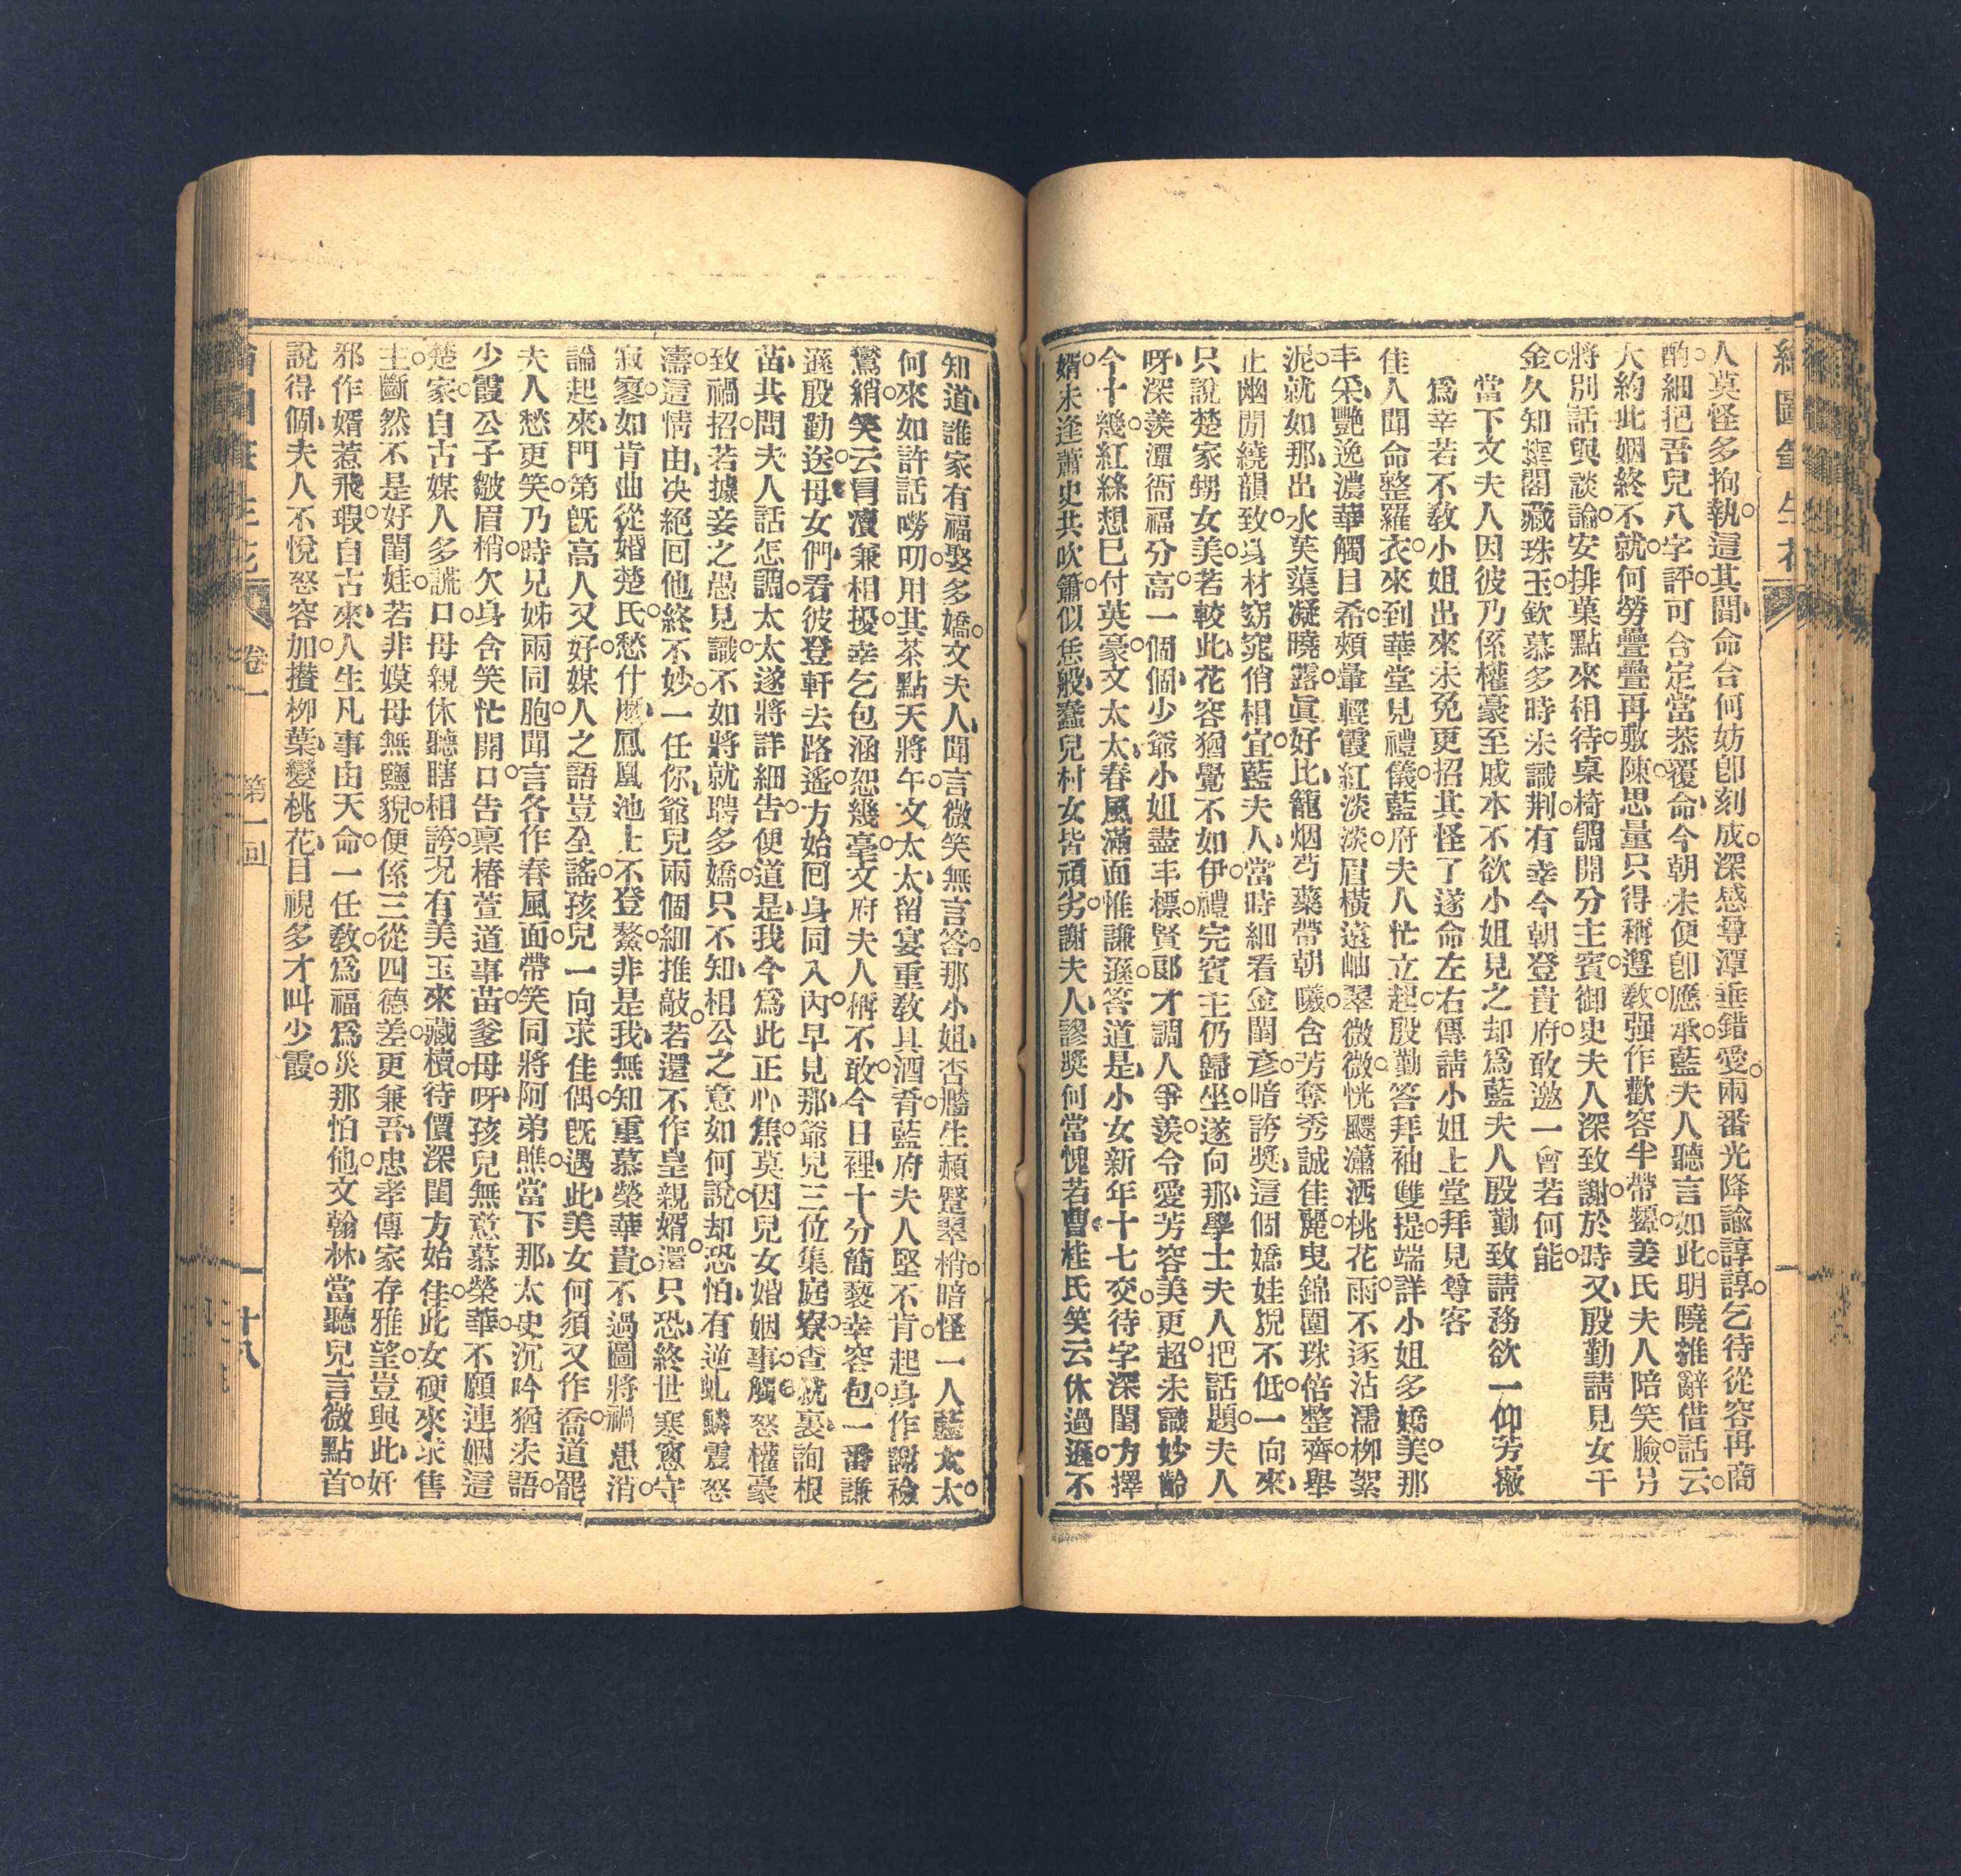 繪圖筆生花
人莫怪多拘執。這其間命合何妨卽刻成。深感尊潭垂錯愛。兩番光降諭諄諄。乞待從容再商
酌。細把吾兒八字評。可合定當恭覆命。今朝未便卽應承。藍夫人聽言如此明曉推辭借話云。
大約此姻終不就。何勞疊疊再敷陳。思量只得稱遵敎。强作歡容半帶顰。姜氏夫人陪笑臉。另
將別話與談論。安排菓點來相待。桌椅調開分主賓。御史夫人深致謝。於時又殷勤請見女千
金。久知蘭閣藏珠玉。欽慕多時未識荆。有幸今朝登貴府。敢邀一會若何能。
當下文夫人因彼乃係權豪至戚本不欲小姐見之却爲藍夫人殷勤致請務欲一仰芳薇
爲幸若不敎小姐出來未免更招其怪了遂命左右傳請小姐上堂拜見尊客
佳人聞命整羅衣。來到華堂見禮儀。藍府夫人忙立起。殷勤答拜袖雙提。端詳小姐多嬌美。那
丰采艷逸濃華觸目希。頰暈輕霞紅淡淡。眉橫遠岫翠微微。恍飃瀟洒桃花雨。不逐沾濡柳絮
泥。就如那出水芙蕖凝曉露。眞好比籠烟芍藥帶朝曦。含芳奪秀誠佳麗。曳錦圍珠倍整齊。舉
止幽閒繞韻致。身材窈窕俏相宜。藍夫人當時細看金閨彥。暗誇獎這個嬌娃貌不低。一向來
只說楚家甥女美。若較此花容猶覺不如伊。禮完賓主仍歸坐。遂向那學士夫人把話題。夫人
呀深羨潭衙福分高。一個個少爺小姐盡丰標。賢郎才調人爭羨。令愛芳容美更超。未識妙齡
今十幾。紅絲想已付英豪。文太太春風滿面惟謙遜。答道是小女新年十七交。待字深閨方擇
婿。未逢蕭史共吹簫。似恁般蠢兒村女皆頑劣。謝夫人謬獎何當愧若曹。桂氏笑云休過遜。不
知道誰家有福娶多嬌。文夫人聞言微笑無言答。那小姐杏靨生頳蹙翠梢。暗怪一人藍太太。
何來如許話嘮叨。用其茶點天將午。文太太留宴重敎具酒肴。藍府夫人堅不肯。起身作謝襝
鸞綃。笑云冒瀆兼相擾。幸乞包涵恕幾毫。文府夫人稱不敢。今日裡十分簡褻幸容包。一番謙
遜殷勤送。母女們看彼登軒去路遙。方始回身同入內。早見那爺兒三位集庭寮。查就裏詢根
苗。共問夫人話怎調。太太遂將詳細告。便道是我今爲此正心焦。莫因兒女婚姻事。觸怒權豪
致禍招。若據妾之愚見識。不如將就聘多嬌。只不知相公之意如何說。却恐怕有逆虬鱗震怒
濤。這情由决絕回他終不妙。一任你爺兒兩個細推敲。若還不作皇親婿。還只恐終世寒窻守
寂寥。如肯曲從婚楚氏。愁什麽鳳凰池上不登鰲。非是我無知重慕榮華貴。不過圖將禍患消。
論起來門第旣高人又好。媒人之語豈全謠。孩兒一向求佳偶。旣遇此美女何須又作喬。道罷
夫人愁更笑。乃時兄姊兩同胞。聞言各作春風面。帶笑同將阿弟瞧。當下那太史沉吟猶未語。
少霞公子皺眉梢。欠身含笑忙開口。告禀椿萱道事苗。爹母呀孩兒無意慕榮華。不願連姻這
楚家。自古媒人多謊口。母親休聽瞎相誇。况有美玉來藏櫝。待價深閨方始佳。此女硬來求售
主。斷然不是好閨娃。若非嫫母無鹽貌。便係三從四德差。更兼吾忠孝傳家存雅望。豈與此奸
邪作婿惹飛瑕。自古來人生凡事由天命。一任敎爲福爲災那怕他。文翰林當聽兒言微點首。
說得個夫人不悅怒容加。攅柳葉變桃花。目視多才叫少霞。
卷一 第一回
十八